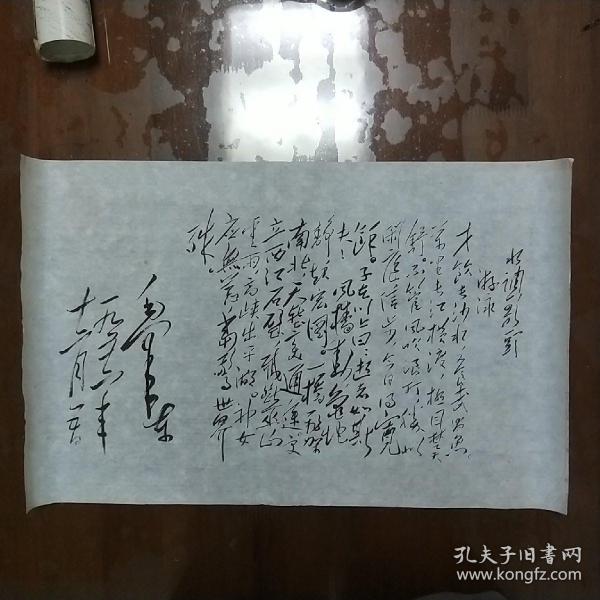 水调歌头
游泳
才饮长沙水，又食武昌鱼。
万里长江横渡，极目楚天
舒。不管风吹浪打，胜似
闲庭信步，今日得宽
馀。子在川上曰：逝者如斯
夫！风樯动，龟蛇
静，起宏图。一桥飞架
南北，天堑变通途。更
立西江石壁，截断巫山
云雨，高峡出平湖。神女
应无恙，当惊世界
殊。
毛泽东
一九五六年
十二月
孔夫子旧书网
www.kongfz.com